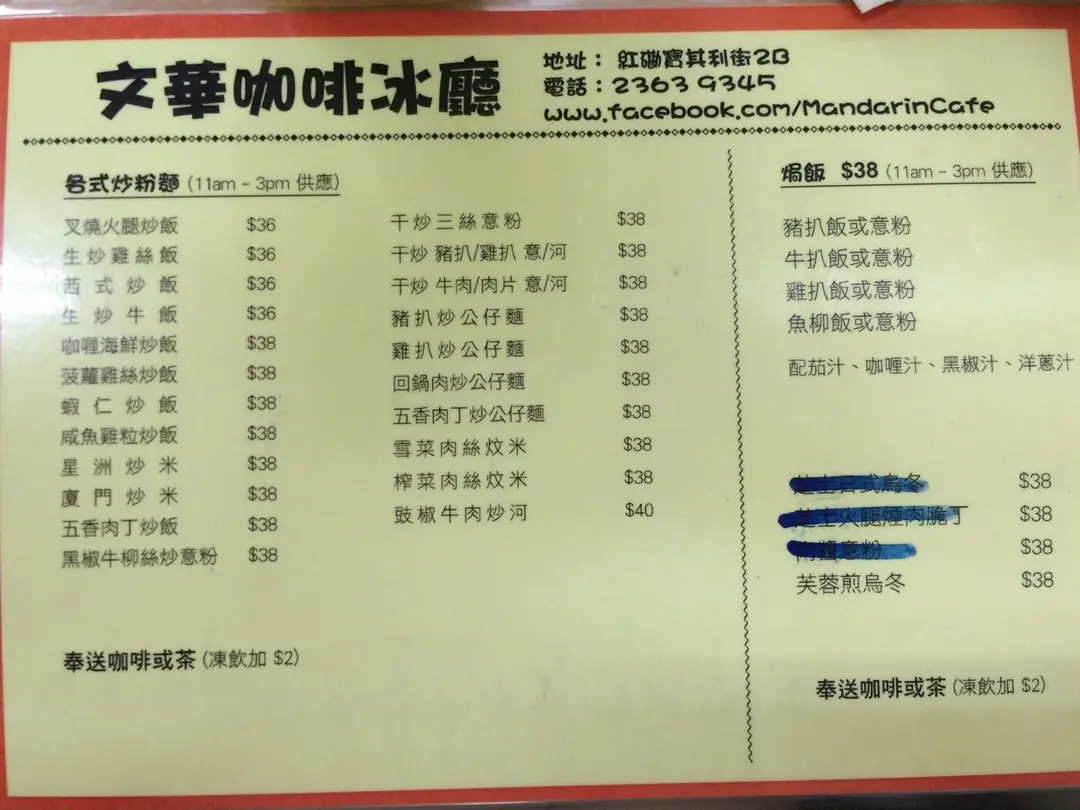 文華咖啡冰廳
地址：紅磡寶其利街2B
電話：2363 9345
www.facebook.com/MandarinCafe
各式炒粉麵 (11am ~ 3pm 供應)
叉燒火腿炒飯 $36
生炒雞絲飯 $36
西式炒飯 $36
生炒牛飯 $36
咖喱海鮮炒飯 $38
菠蘿雞絲炒飯 $38
蝦仁炒飯 $38
咸魚雞粒炒飯 $38
星洲炒米 $38
廈門炒米 $38
五香肉丁炒飯 $38
黑椒牛柳絲炒意粉 $38
干炒三絲意粉 $38
干炒 豬扒/雞扒 意/河 $38
干炒 牛肉/肉片 意/河 $38
豬扒炒公仔麵 $38
雞扒炒公仔麵 $38
回鍋肉炒公仔麵 $38
五香肉丁炒公仔麵 $38
雪菜肉絲炆米 $38
榨菜肉絲炆米 $38
豉椒牛肉炒河 $40
奉送咖啡或茶 (凍飲加 $2)
焗飯 $38 (11am ~ 3pm 供應)
豬扒飯或意粉
牛扒飯或意粉
雞扒飯或意粉
魚柳飯或意粉
配茄汁、咖喱汁、黑椒汁、洋蔥汁
芝士日式烏冬 $38
芝士火腿煙肉脆丁 $38
肉醬意粉 $38
芙蓉煎烏冬 $38
奉送咖啡或茶 (凍飲加 $2)